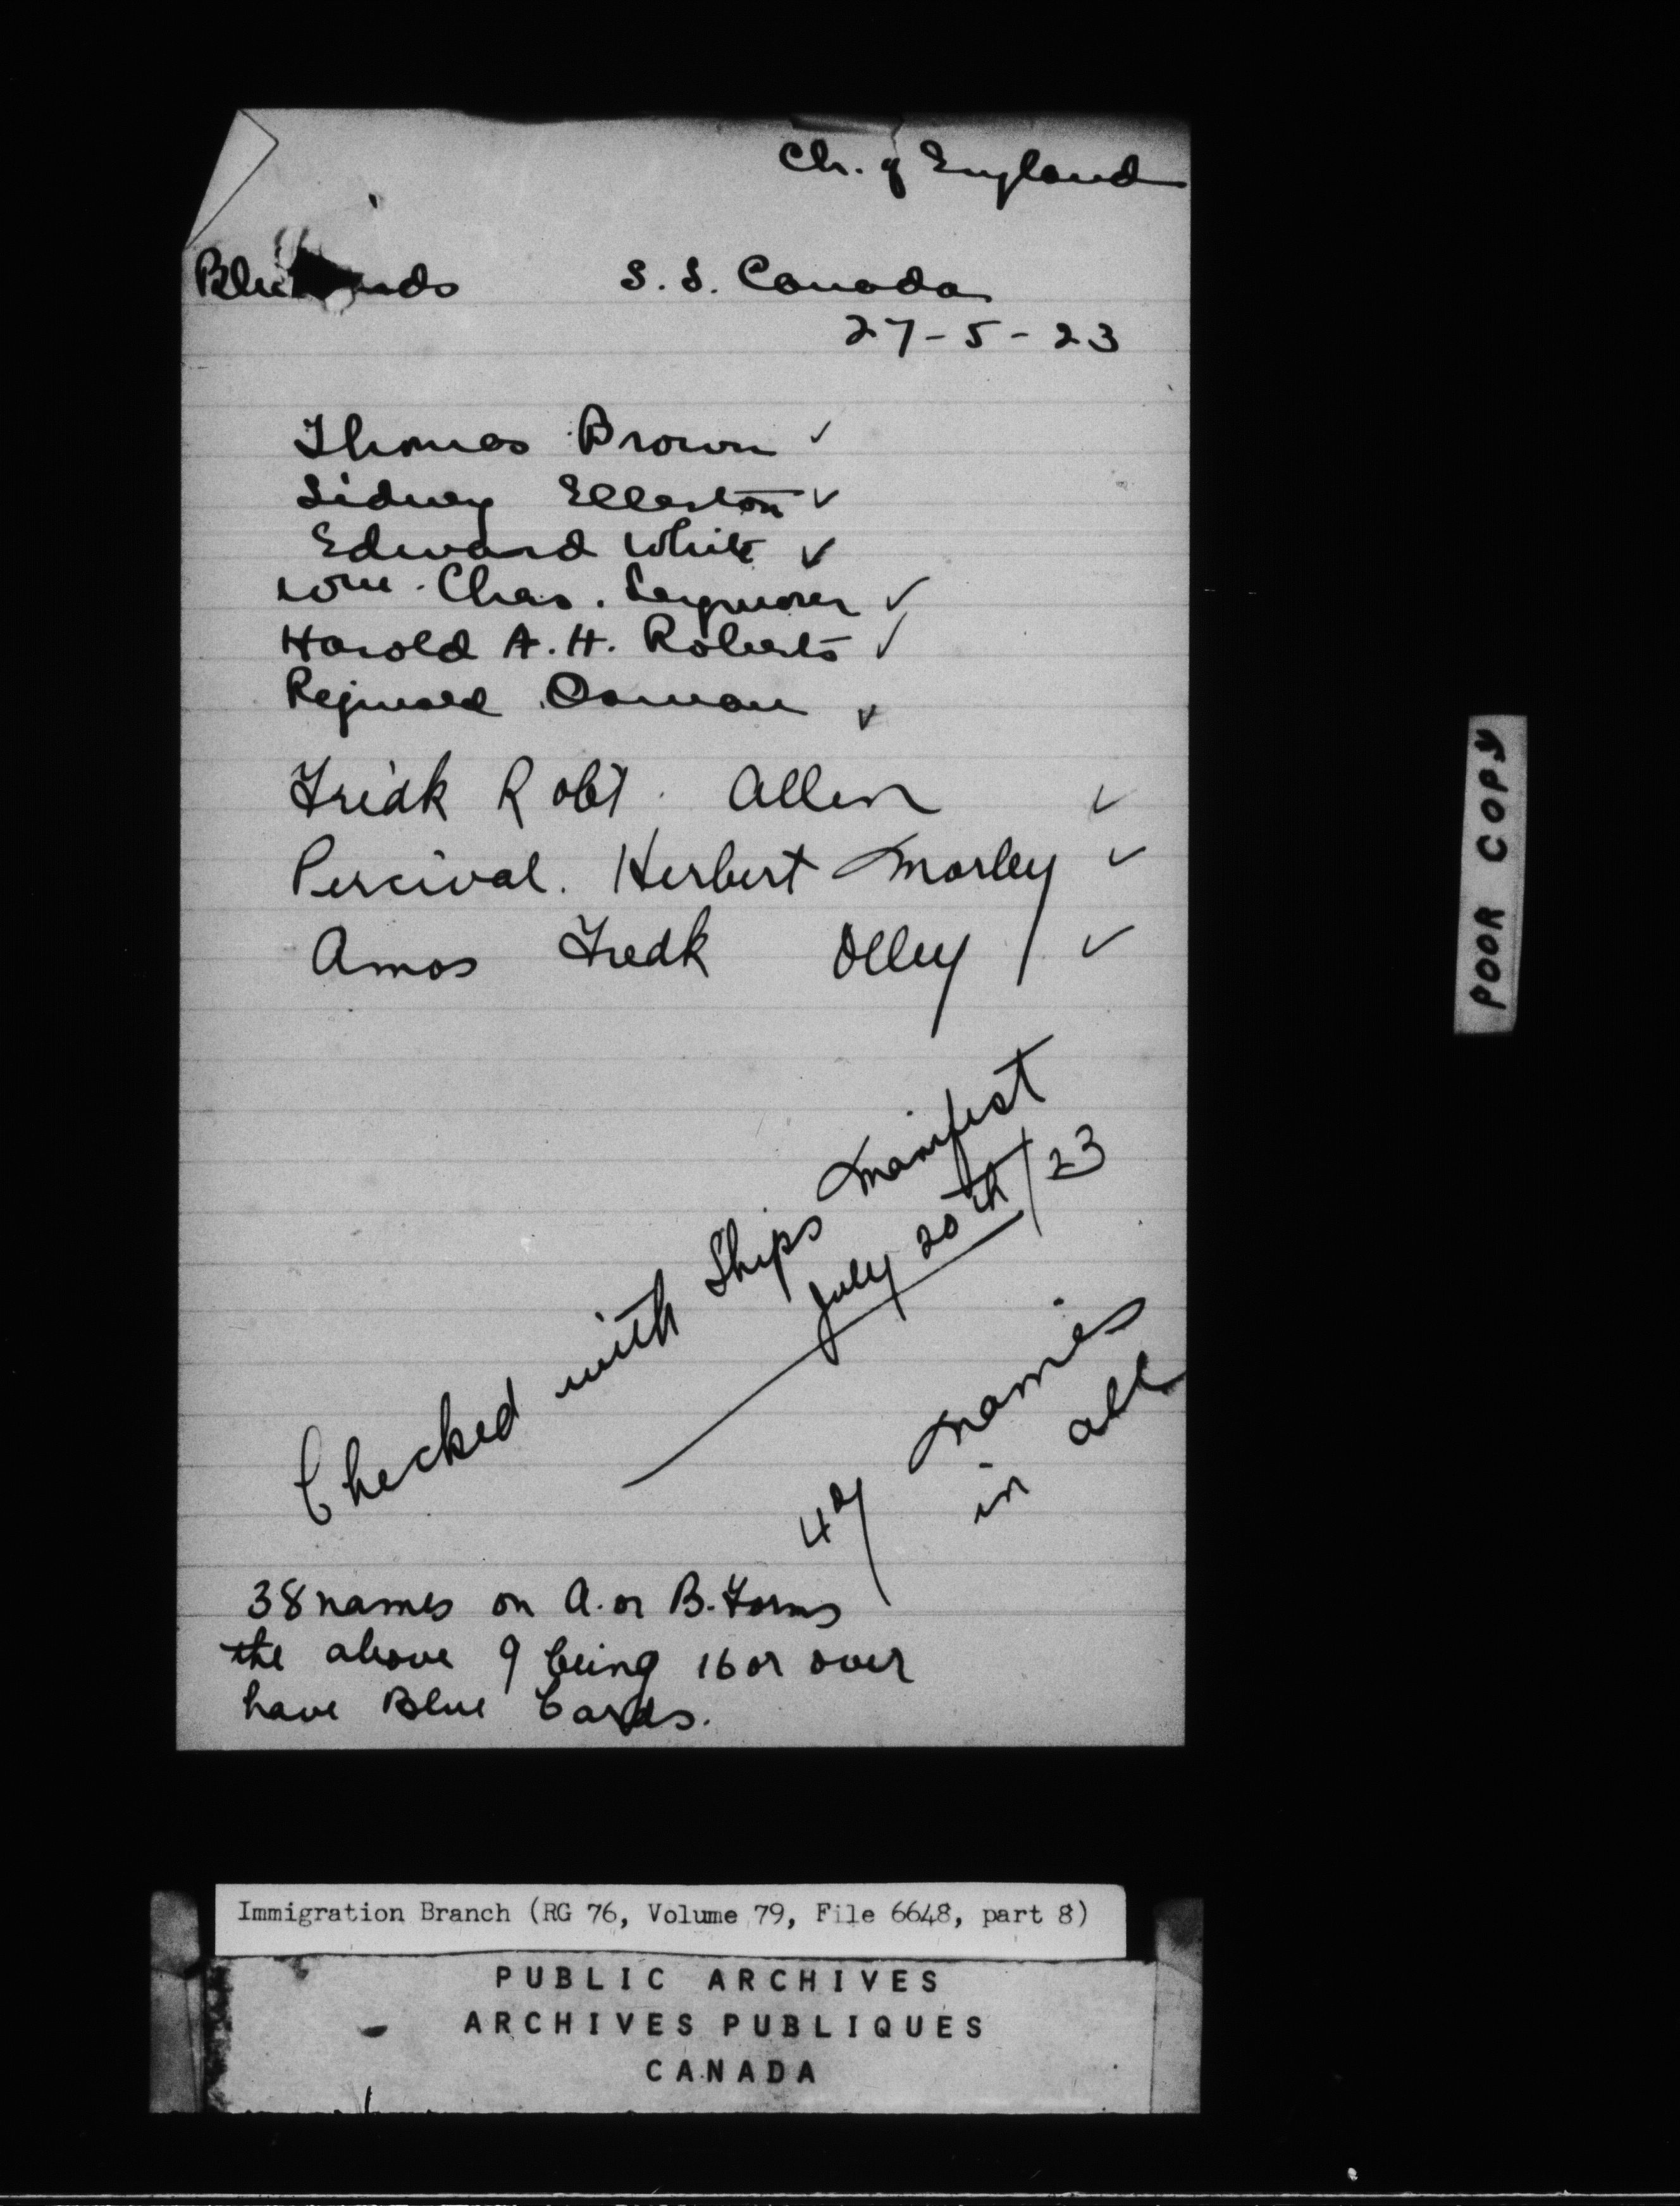 Ch. of England
Blue Cards S. S. Canada
27-5-23
Thomas Brown ✓
Sidney Ellerton ✓
Edward White ✓
Wm. Chas. Seymour ✓
Harold A. H. Roberts ✓
Osman ✓
Fredk Robt. Allen ✓
Percival. Herbert Morley ✓
Amos Fredk Olley ✓
Checked with Ships Manifest
July 20th/23
47 names
in all
38 names on A. or B. Forms
the above 9 being 16 or over
have Blue Cards.
POOR COPY
Immigration Branch (RG 76, Volume 79, File 6648, part 8)
PUBLIC ARCHIVES
ARCHIVES PUBLIQUES
CANADA